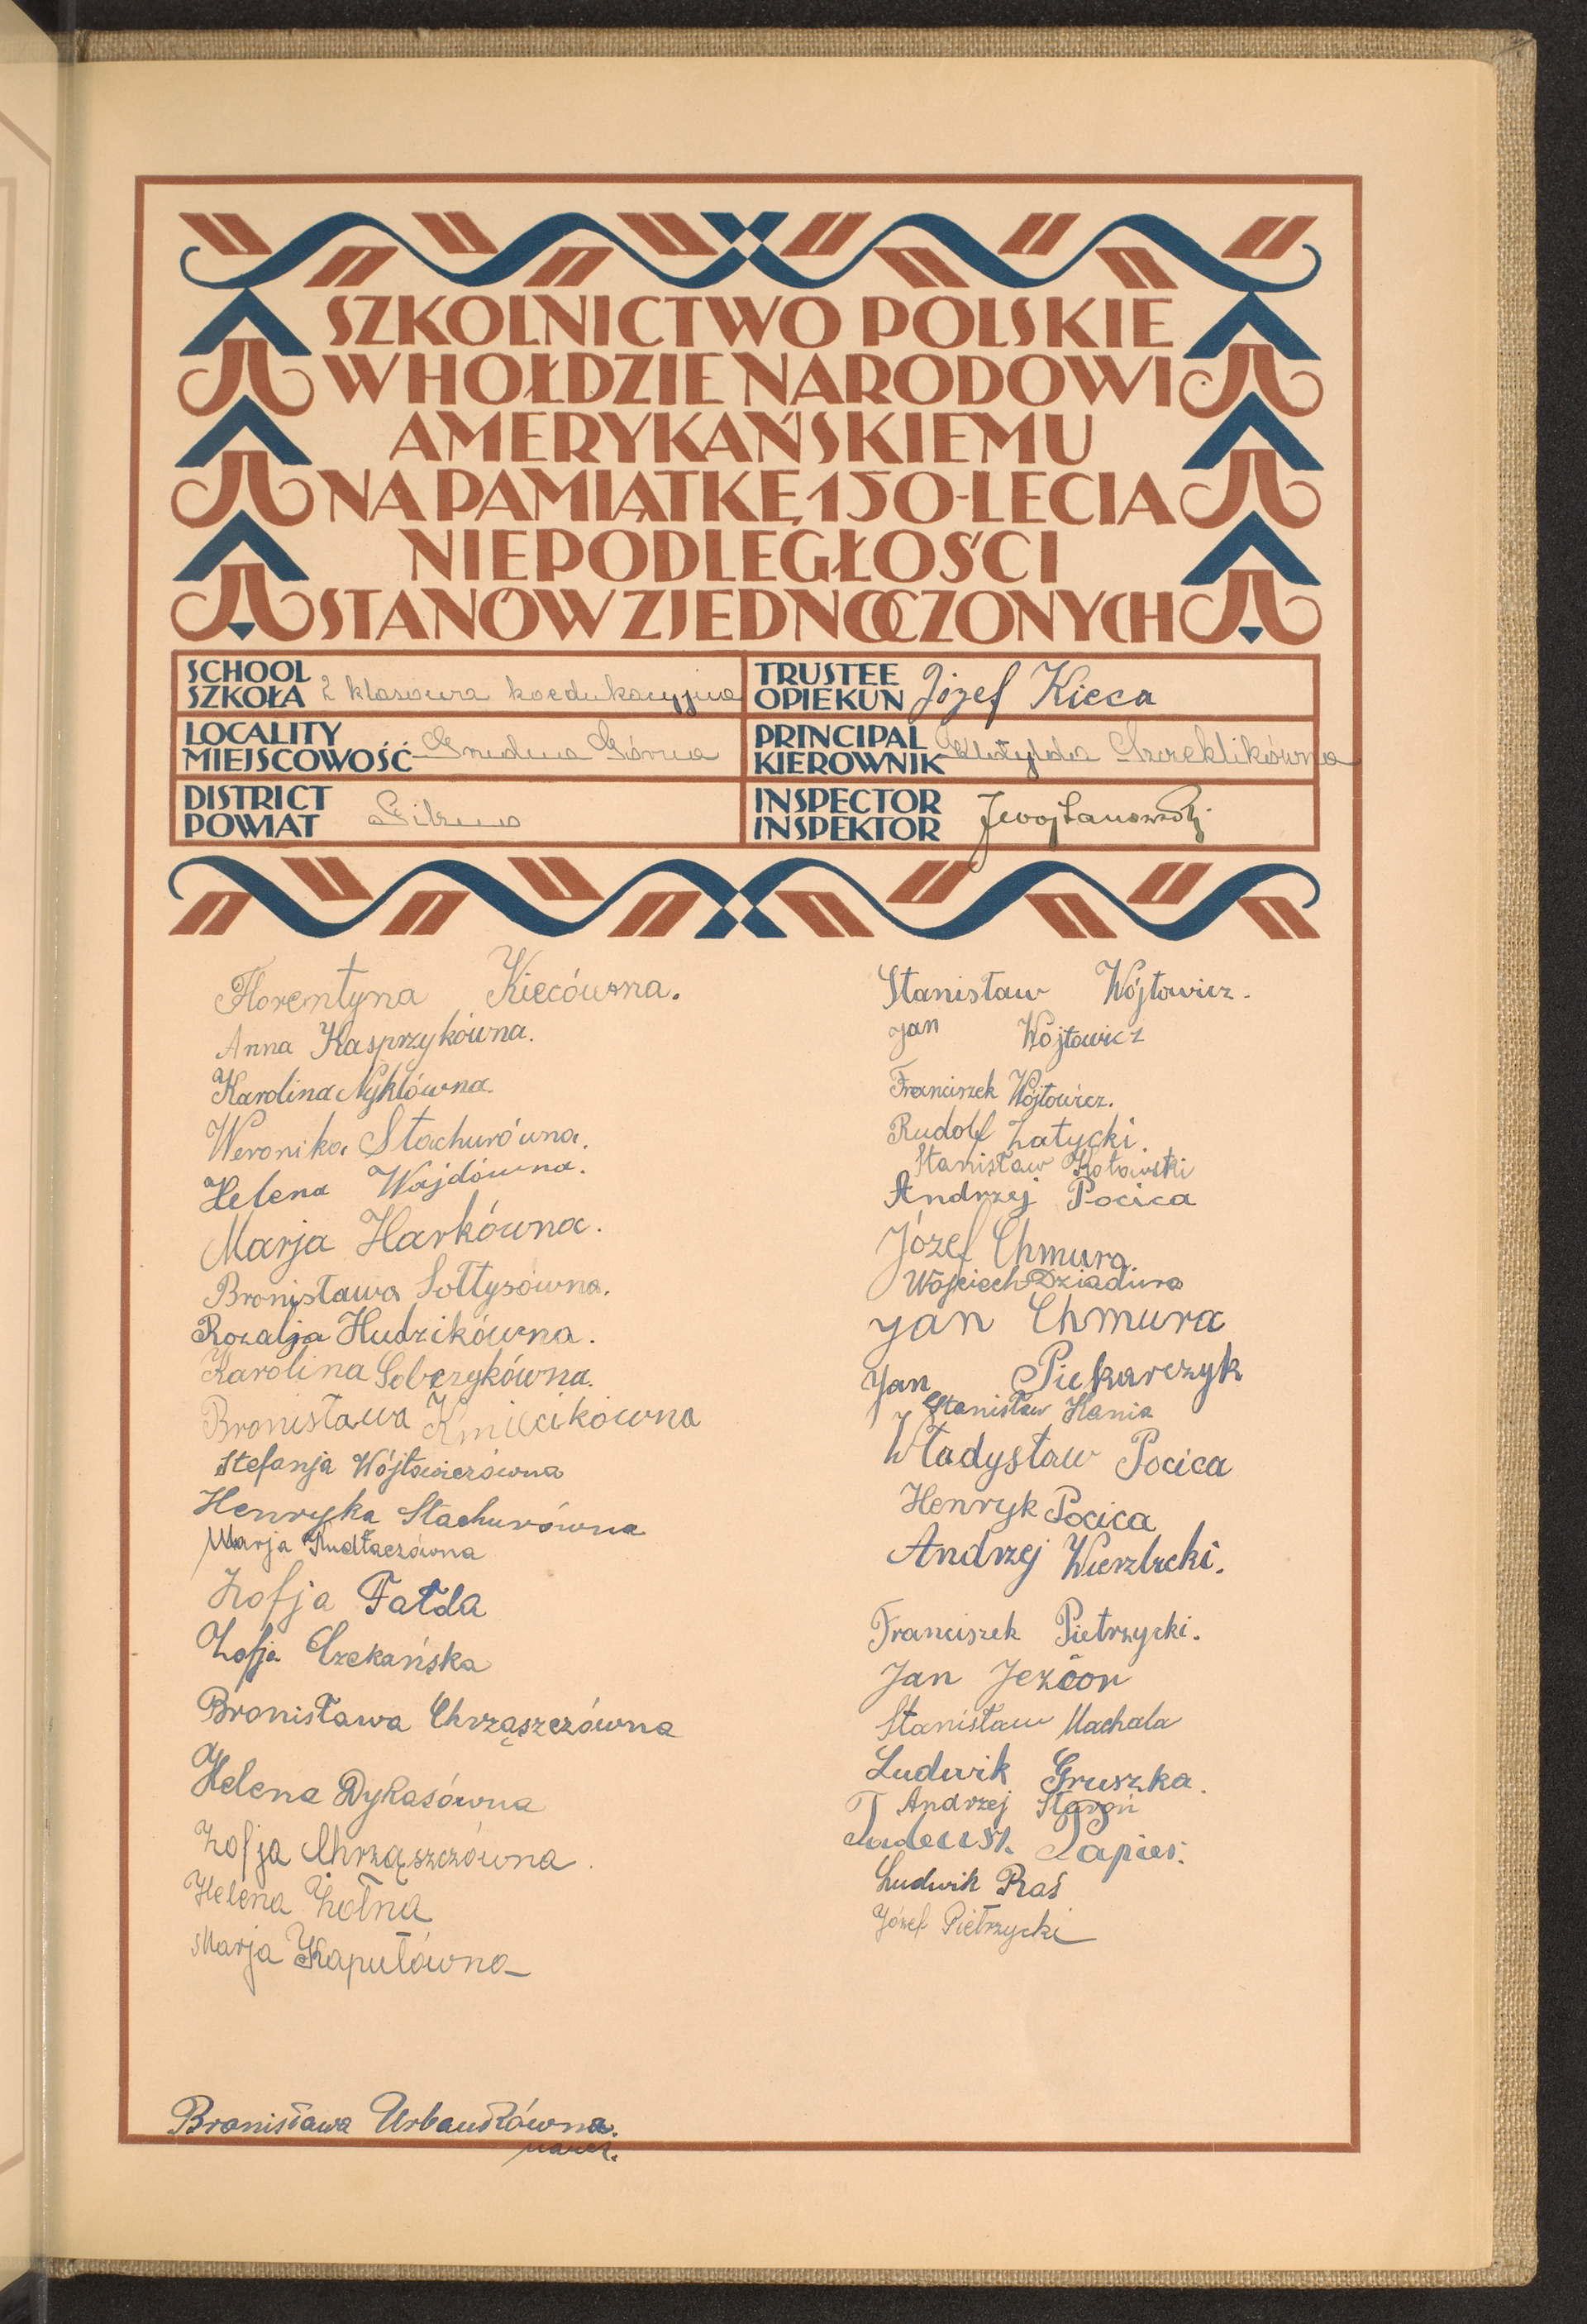 SZKOLNICTWO POLSKIE
W HOŁDZIE NARODOWI
AMERYKAŃSKIEMU
NA PAMIĄTKĘ 150-LECIA
NIEPODLEGŁOŚCI
STANÓW ZJEDNOCZONYCH
SCHOOL
SZKOŁA 2 klasowa koedukacyjna
TRUSTEE
OPIEKUN Józef Kieca
LOCALITY
MIEJSCOWOŚĆ Grudna Górna
PRINCIPAL
KIEROWNIK Klotylda Szczeklikówna
DISTRICT
POWIAT Pilzno
INSPECTOR
INSPEKTOR
Florentyna Kiecówna.
Anna Kasprzykówna.
Karolina Nyklówna.
Weronika Stachurówna.
Helena Wajdówna.
Marja Harkówna.
Bronisława Sołtysówna.
Rozalja Hudzikówna.
Karolina Sobczykówna.
Bronisława Kmiecikówna
Stefanja Wójtowiczówna
Henryka Stachurówna
Marja Kudłaczówna
Zofja Fałda
Zofja Czekańska
Bronisława Chrząszczówna
Helena Dykasówna
Zofja Chrząszczówna.
Helena Żołna
Marja Kapułówna
Bronisława Urbanikówna.
naucz.
Stanisław Wójtowicz.
Jan Wójtowicz
Franciszek Wójtowicz.
Rudolf Załycki.
Stanisław Kotowski
Andrzej Pocica
Józef Chmura.
Wojciech Dziadura
Jan Chmura
Jan Piekarczyk
Stanisław Kania
Władysław Pocica
Henryk Pocica
Andrzej Wierzbicki.
Franciszek Pietrzycki.
Jan Jezior
Stanisław Machala
Ludwik Gruszka.
Andrzej Staroń
Tadeusz. Papies.
Ludwik Raś
Józef Pietrzycki